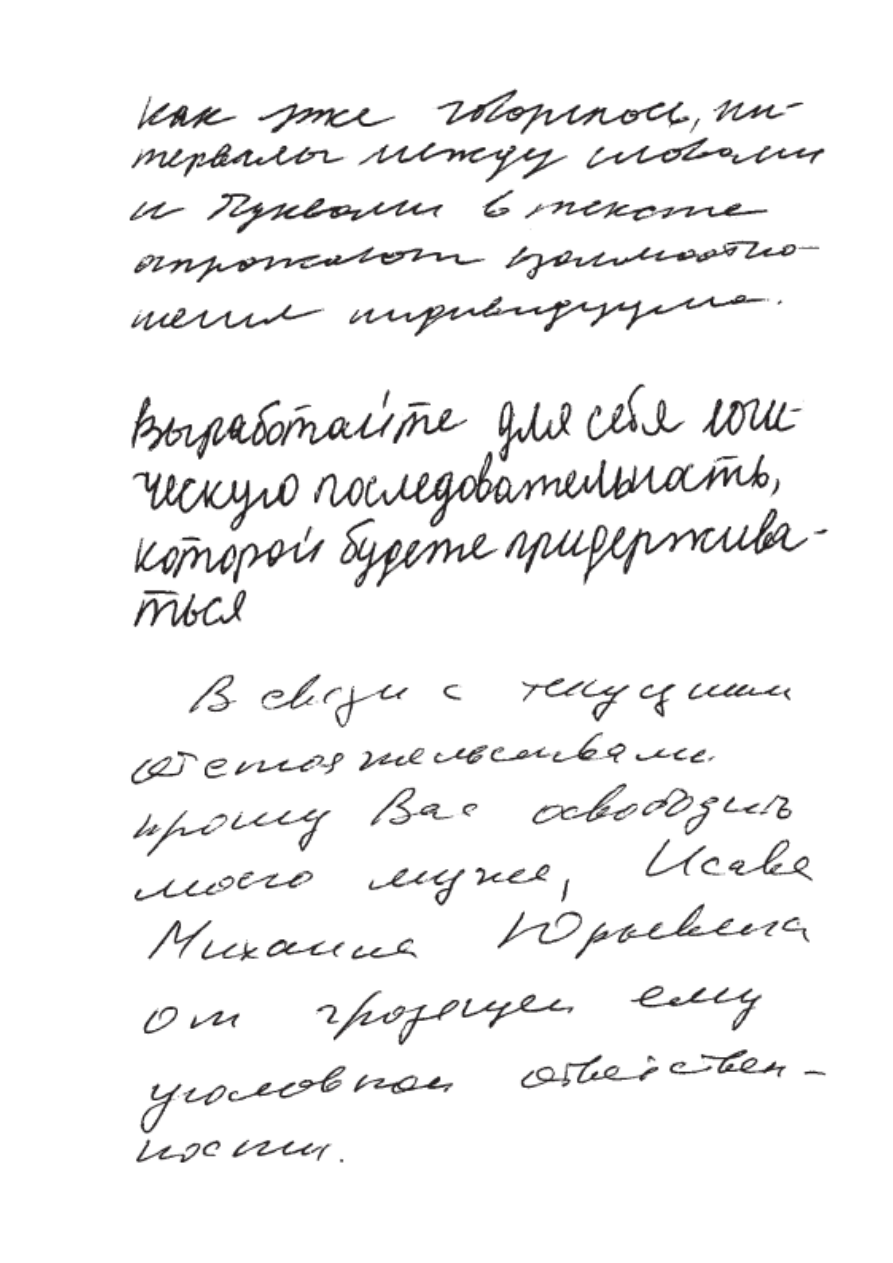 Как уже говорилось, ин-
тервалы между словами
и буквами в тексте
отражают взаимоотно-
шения индивидуума.
Выработайте для себя логи-
ческую последовательность,
которой будете придержива-
ться
В связи с текущими
обстоятельствами
прошу Вас освободить
моего мужа, Исаева
Михаила Юрьевича
от грозящей ему
уголовной ответствен-
ности.